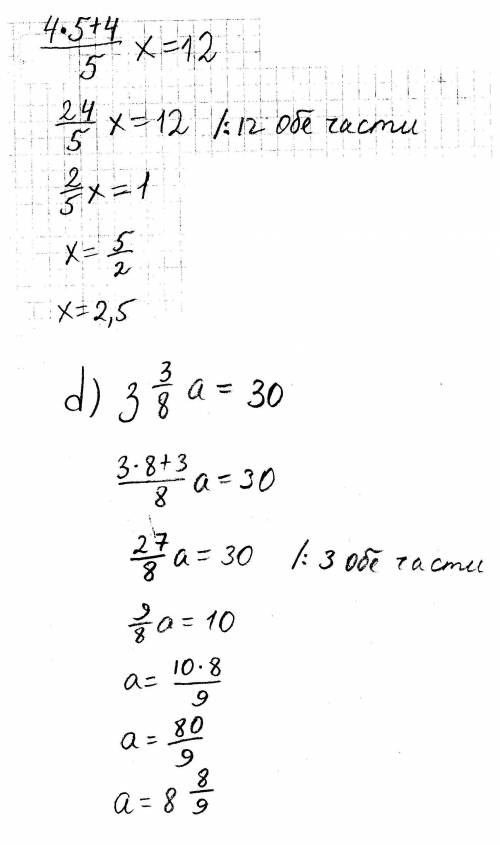 4·5+4/5 x=12
24/5 x=12 /:12 обе части
2/5 x=1
x=5/2
x=2,5
d) 3 3/8 a = 30
3·8+3/8 a=30
27/8 a=30 /: 3 обе части
9/8 a=10
a=10·8/9
a=80/9
a=8 8/9